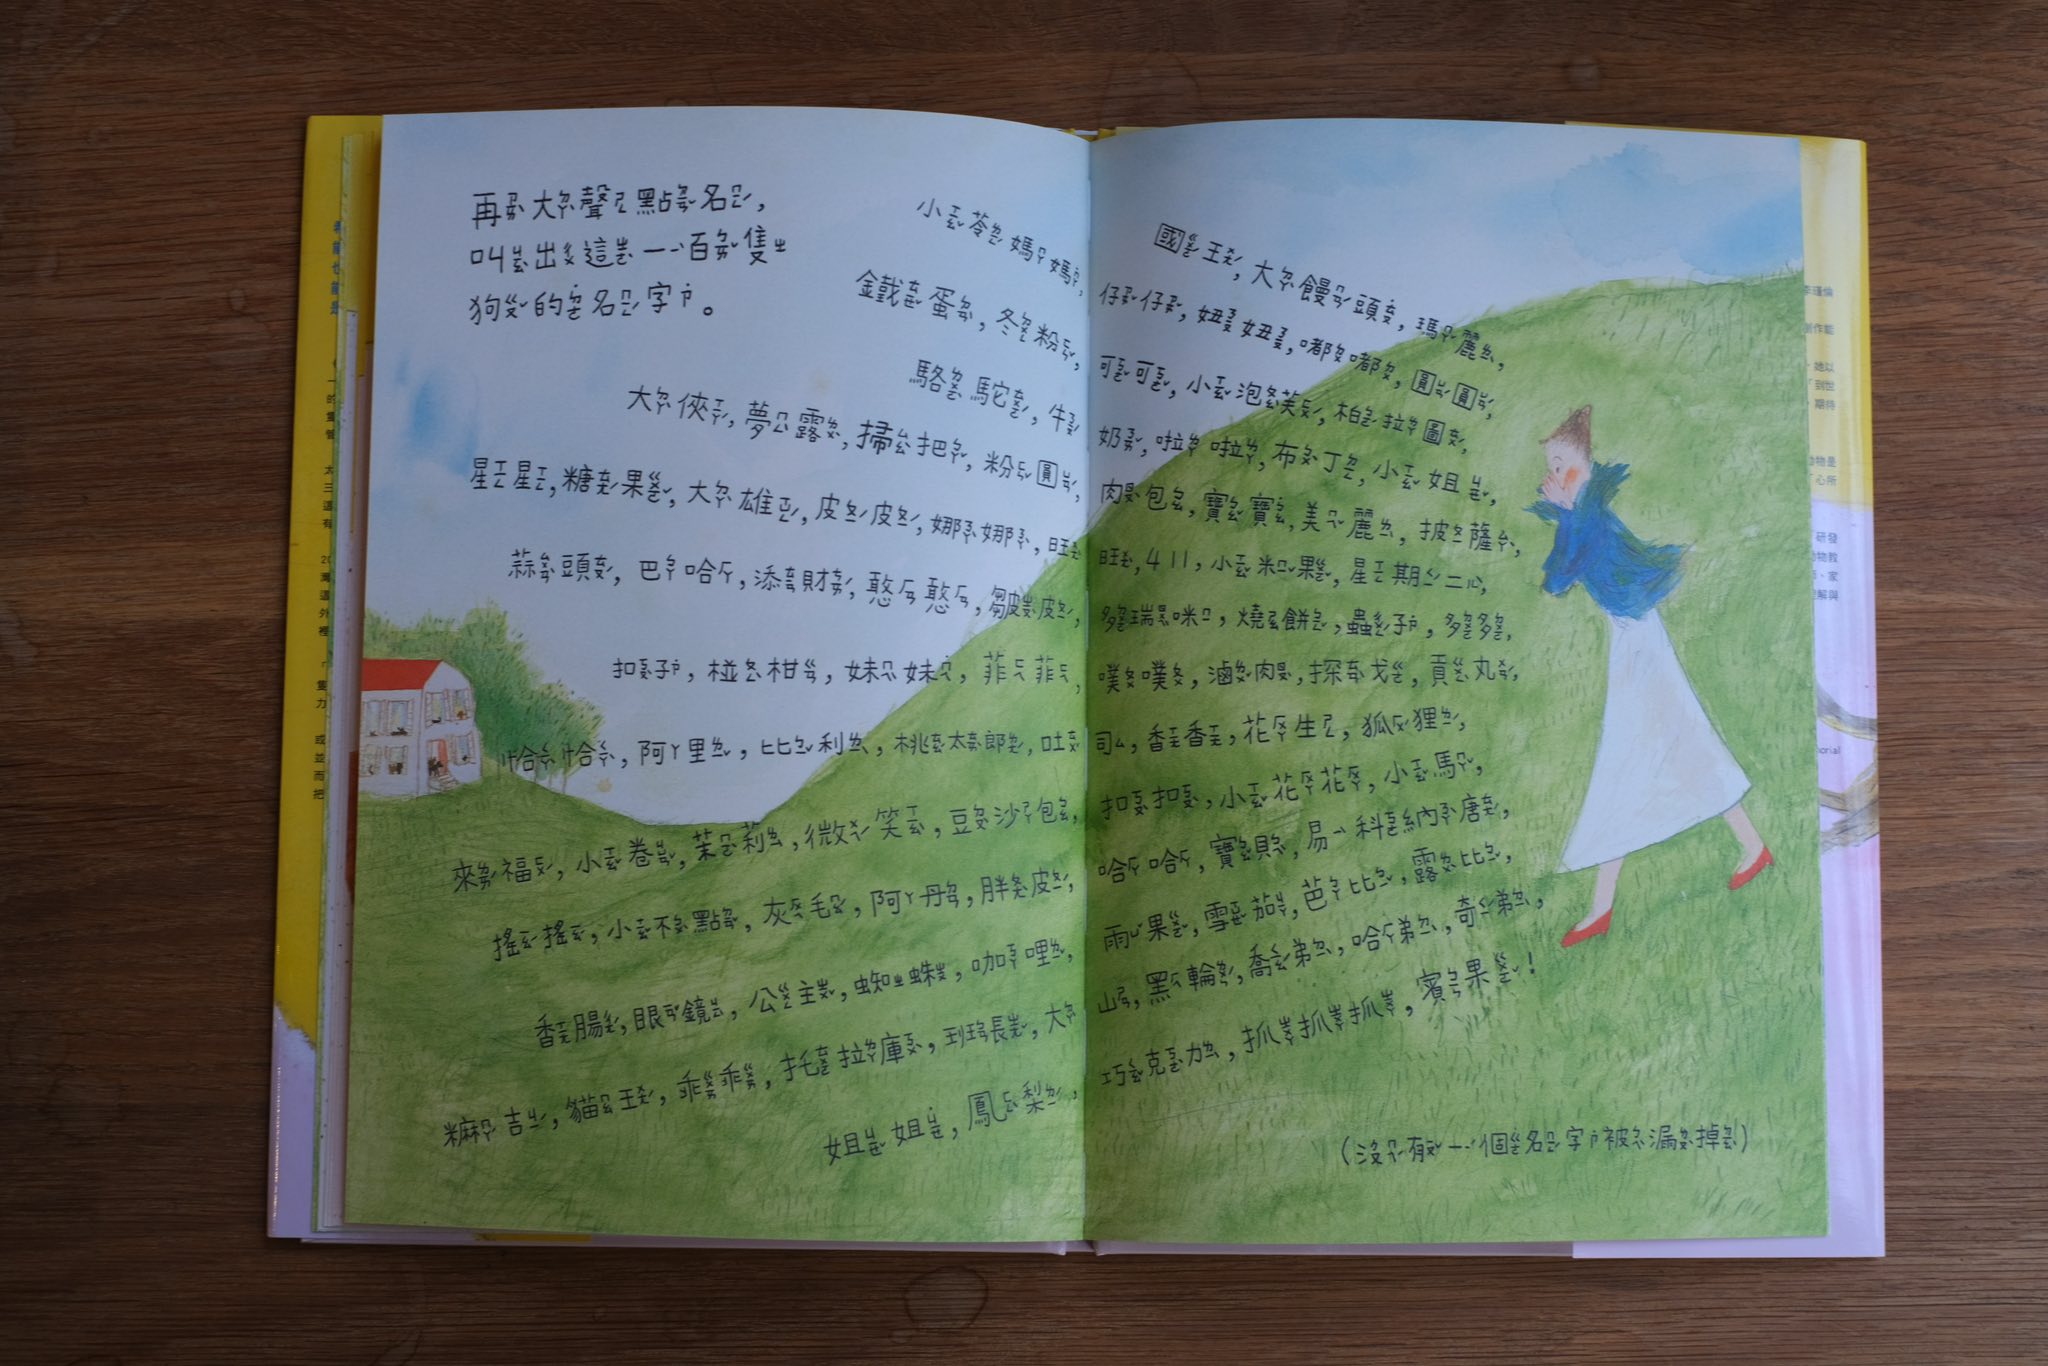 再大聲點名，
叫出這一百隻
狗的名字。
國王，大饅頭，瑪麗，
小苓媽媽，仔仔，妞妞，嘟嘟，圓圓，
鐵蛋，冬粉，可可，小泡芙，柏拉圖，
駱駝，牛奶，啦啦，布丁，小姐，
大俠，夢露，掃把，粉圓，肉包，寶寶，美麗，披薩，
星星，糖果，大雄，皮皮，娜娜，旺旺，411，小米果，星期二，
蒜頭，巴哈，添財，憨憨，皺皮，多瑞咪，燒餅，蟲子，多多，
扣子，椪柑，妹妹，菲菲，噗噗，滷肉，探戈，貢丸，
恰恰，阿里，比利，桃太郎，吐司，香香，花生，狐狸，
來福，小卷，茉莉，微笑，豆沙包，扣扣，小花花，小馬，
搖搖，小不點，灰毛，阿丹，胖皮，哈哈，寶貝，易科納唐，
香腸，眼鏡，公主，蜘蛛，咖哩，雨果，雪茄，芭比，露比，
麻吉，貓王，乖乖，托拉庫，班長，大山，黑輪，喬弟，哈弟，奇弟，
姐姐，鳳梨，巧克力，抓抓抓，賓果！
（沒有一個名字被漏掉）